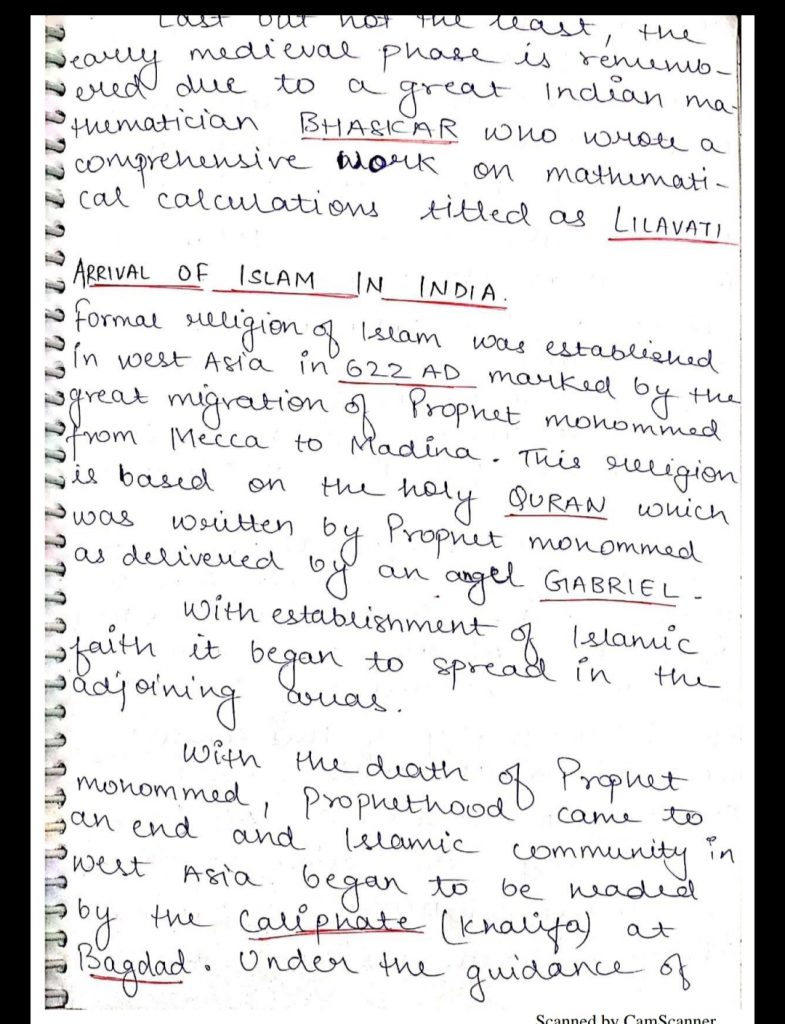 Last but not the least, the
early medieval phase is rememb-
ered due to a great Indian ma-
thematician BHASKAR who wrote a
comprehensive work on mathemati-
cal calculations titled as LILAVATI
ARRIVAL OF ISLAM IN INDIA.
Formal religion of Islam was established
in west Asia in 622 AD marked by the
great migration of Prophet mohommed
from Mecca to Madina. This religion
is based on the holy QURAN which
was written by Prophet mohommed
as delivered by an angel GABRIEL.
With establishment of Islamic
faith it began to spread in the
adjoining areas.
With the death of Prophet
mohommed, Prophethood came to
an end and Islamic community in
west Asia began to be headed
by the Caliphate (Khalifa) at
Bagdad. Under the guidance of
Scanned by CamScanner